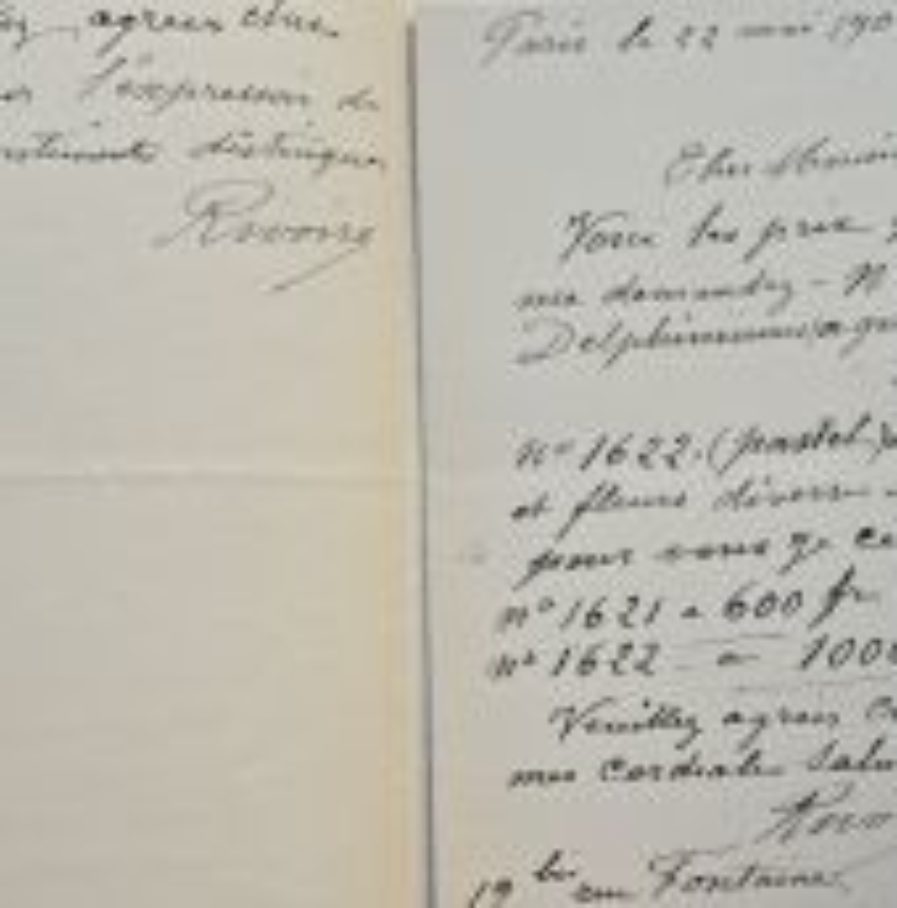 agréer cher
l'expression de
distingués
Rivoire
Paris le 22 mai 190
Cher Monsi
Voici les prix
me demandez - N
Delphiniums aqu
n° 1622. (pastel)
et fleurs diverses
pour vous
n° 1621 a 600 fr
n° 1622 - a 1000
Veuillez agréer
mes cordiales Salu
Rivo
19 bis rue Fontaine